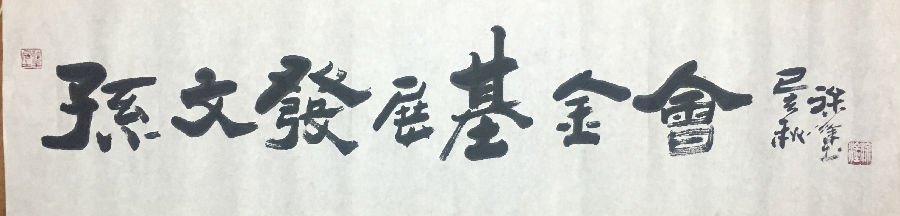 孫文發展基金會